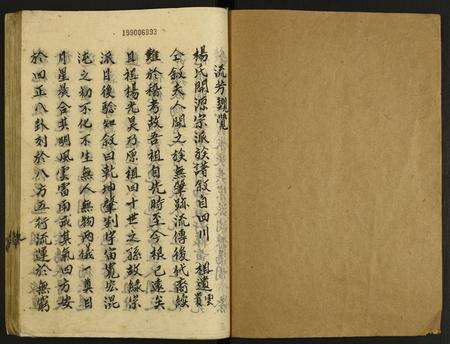 199006893
流芳覽
楊氏開源宗派族譜敘自四川 祖遺
仝敘夫人間之族無肇跡流傳後代喬
難於稽考故吾祖自先時至今根已遠矣
且根楊光昊乃原祖四十世之孫故
派目後驗知敘曰乾坤肇判宇宙混
沌之初不化不生無人無物兩儀一奠日
月星辰合其明風雲雷雨成其氣四方安
於四正八卦列於八方五行流運於無窮